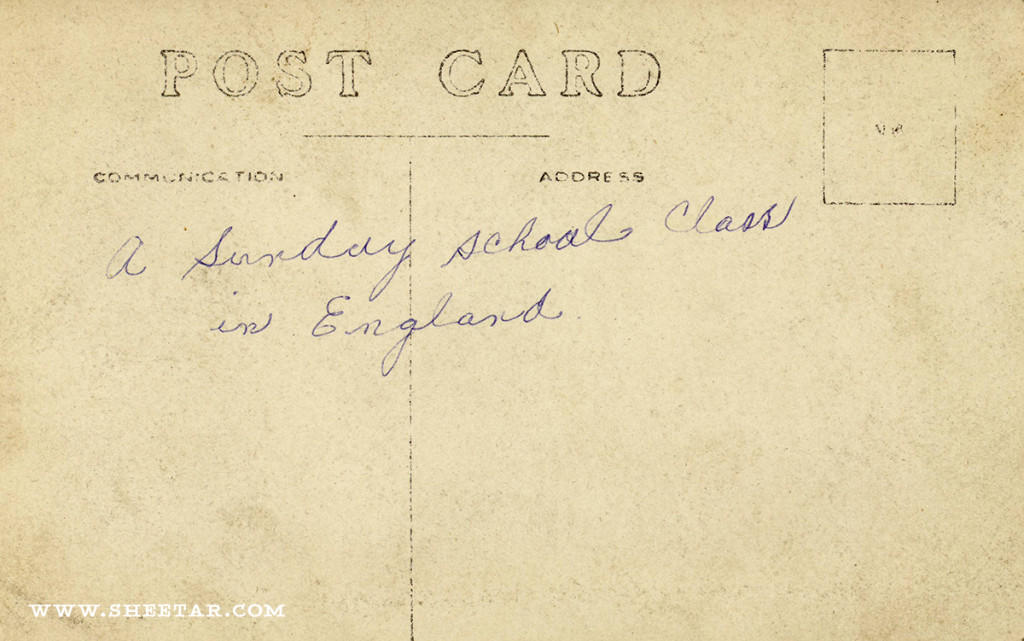 POST CARD
COMMUNICATION
ADDRESS
A Sunday school Class
in England
WWW.SHEETAR.COM